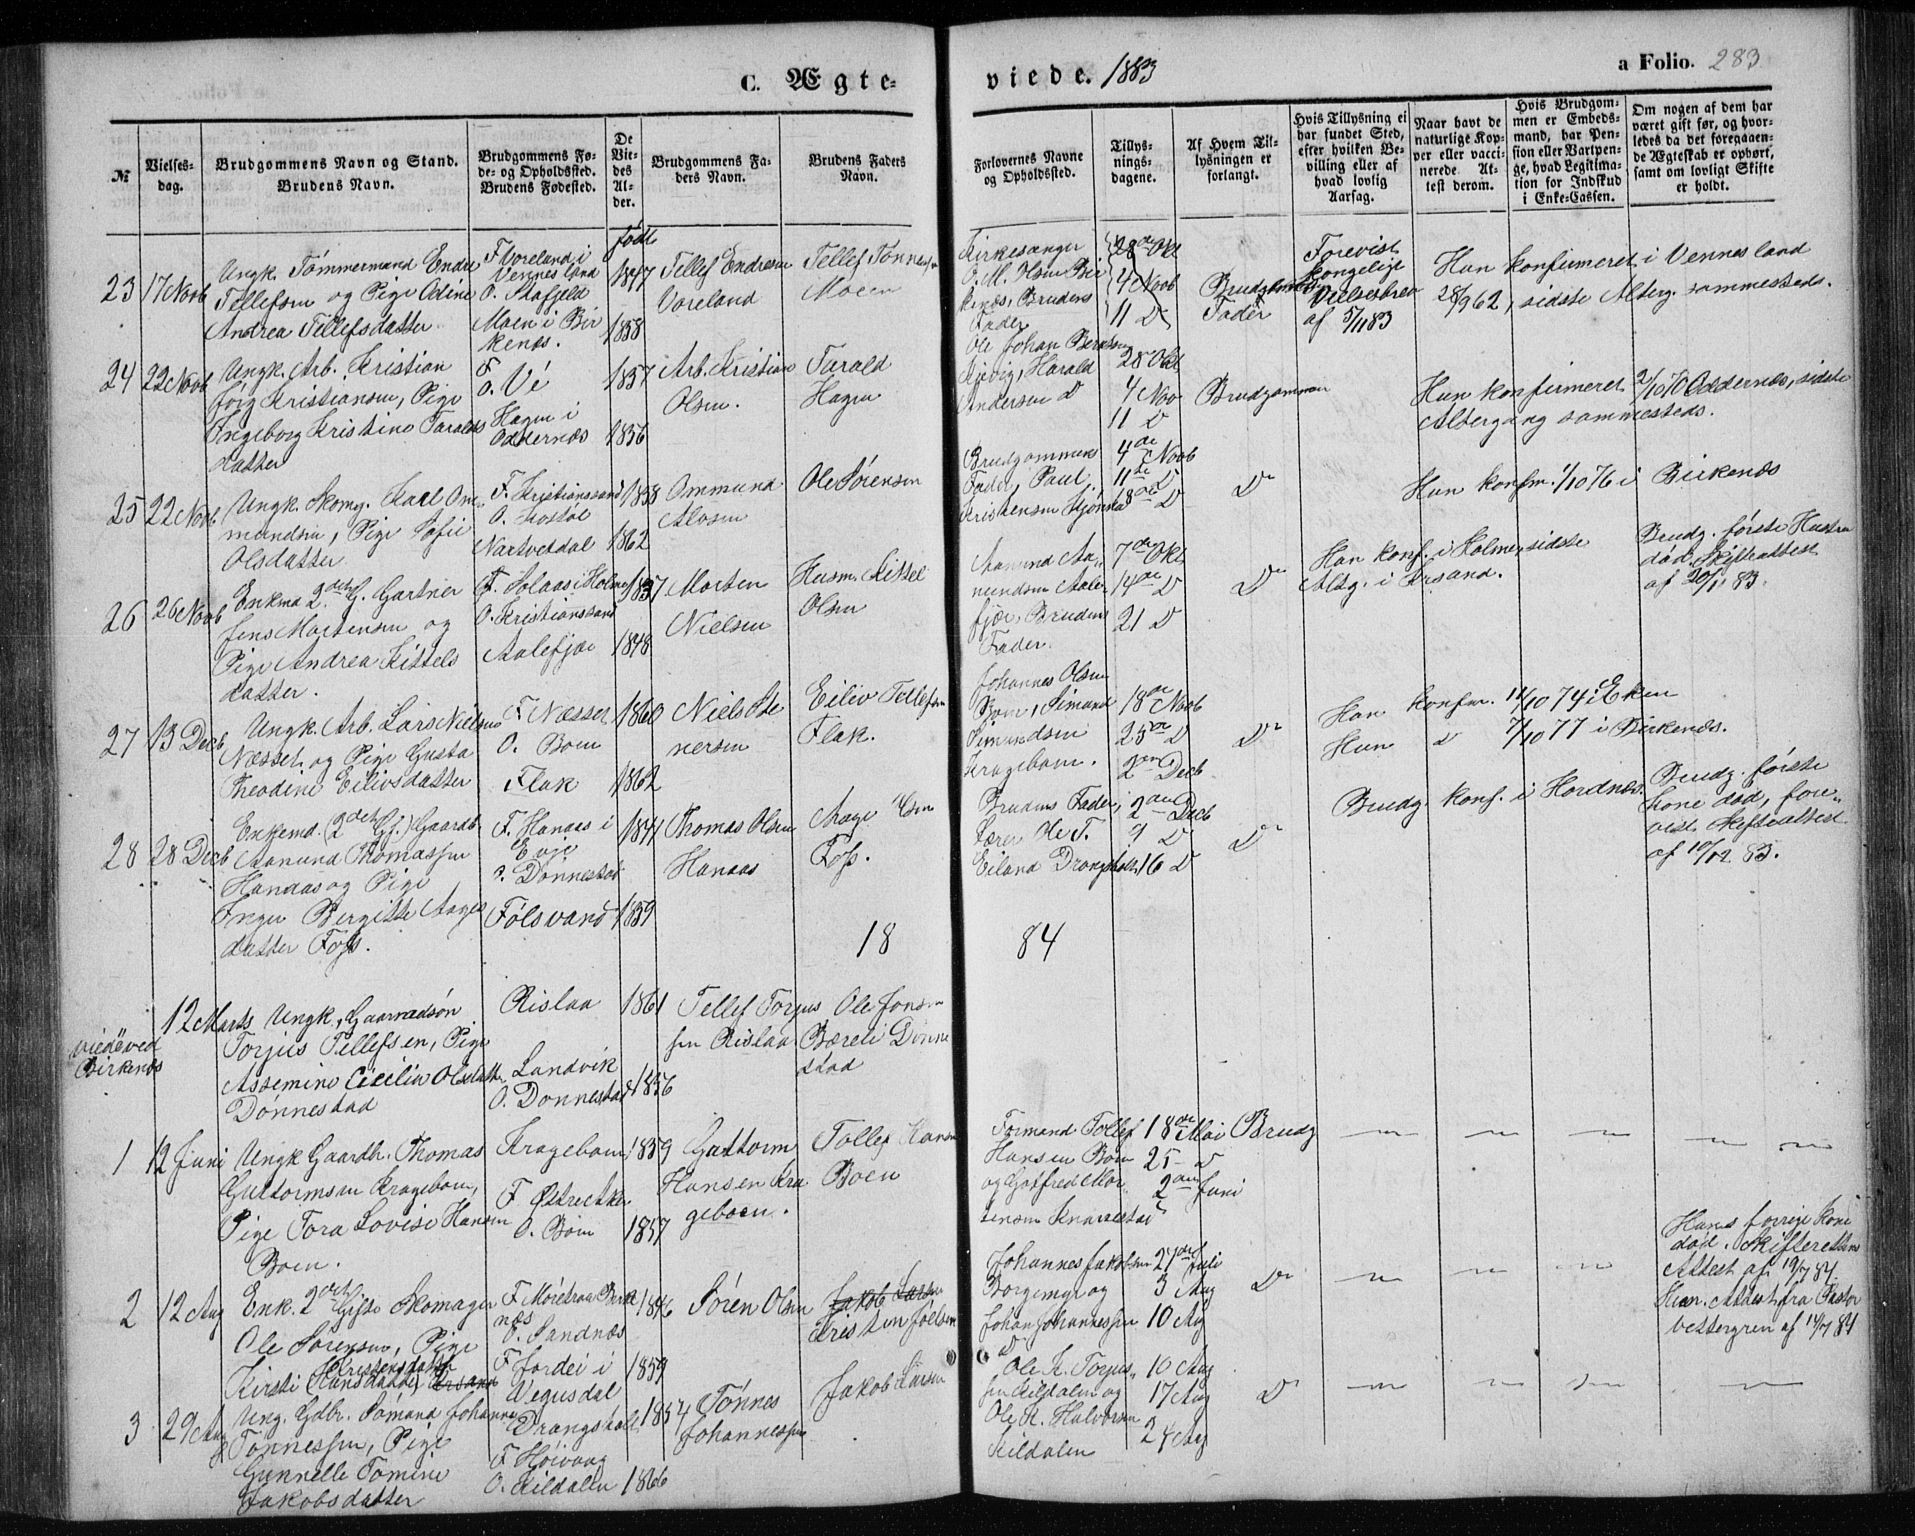 C. Ægte-
viede. 1883
a Folio. 283
№
Vielses-
dag.
Brudgommens Navn og Stand.
Brudens Navn.
Brudgommens Fø-
de- og Opholdssted.
Brudens Fødested.
De
Vie-
des
Al-
der.
Brudgommens Fa-
ders Navn.
Brudens Faders
Navn.
Forlovernes Navne
og Opholdssted.
Tillys-
nings-
dagene.
Af Hvem Til-
lysningen er
forlangt.
Hvis Tillysning ei
har fundet Sted,
efter hvilken Be-
villing eller af
hvad lovlig
Aarsag.
Naar havt de
naturlige Kop-
per eller vacci-
nerede. At-
test derom.
Hvis Brudgom-
men er Embeds-
mand, har Pen-
sion eller Vartpen-
ge, hvad Legitima-
tion for Indskud
i Enke-Cassen.
Om nogen af dem har
været gift før, og hvor-
ledes da det foregaaen-
de Ægteskab er ophørt,
samt om lovligt Skifte
er holdt.
født
23
17 Novb
Ungk. Tømmermand Endre
Tellefsen og Pige Odine
Andrea Tellefsdatter
F. Voreland i
Vennesland
Moen i Bir
kenæs.
1847
1858
Tellef Endresen
Voreland
Tellef Tønnesen
Moen
Kirkesanger
O. M. Olsen Bir
kenæs, Brudens
Fader
28de Okt
4 Novb
11 D
Fader
Forevist
kongelige
af 5/11 83
Han konfirmeret i Vennesland
28/9 62, sidste Alterg. sammesteds.
24
22 Novb
Ungk. Arb. Kristian
Jörg Kristiansen, Pige
Ingeborg Kristine Taralds
datter
F.
O. Vé
Hagen i
Oddernæs
1857
1856
Arb. Kristian
Olsen.
Tarald
Hagen
Ole Johan Berntsen
Kjevig, Harald
Andersen D
28 Okt
4 Nov
11 D
Brudgommen
Hun konfirmeret 2/10 70 Oddernæs, sidste
Altergang sammesteds.
25
22 Novb
Ungk. Skomg. Karl Om-
mundsen, Pige Sofie
Olsdatter
F. Kristianssand
O. Kostøl
Nartvetdal
1858
1862
Ommund
Alosen
Ole Sørensen
Brudgommens
Fader, Paul
4de Novb
11te D
18de D
D
Hun konfm. 1/10 76 i Birkenæs
26
26 Novb
Enkmd 2det G. Gartner
Jens Mortensen og
Pige Andrea Kittels
datter.
F. Solaas i Holme
O. Kristianssand
Aalefjær
1837
1848
Morten
Nielsen
Husm. Kittel
Olsen
Aamund Aa-
mundsen Aale-
fjær, Brudens
Fader.
7de Okt
14de D
21 D
D
Han konf. i Holme, sidste
Altg. i Krsand.
Brudg. første Hustru
død. Skifteattest
af 20/11 83.
27
13 Decb
Ungk. Arb. Lars Nielsen
Næsset og Pige Gusta
Theodine Eilivsdatter
F. Næsset
O. Boen
Flak
1860
1862
Niels Ste
nersen
Eiliv Tellefsen
Flak.
Johannes Olsen
Boen, Simund
Simundsen
Krageboen.
18de Novb
25de D
2den Decb
D
Han konfm. 11/10 74 i Eken
Hun D 7/10 77 i Birkenæs.
28
28 Decb
Enkemd. (2det Gf.) Gaardb.
Aanund Thomassen
Hanaas og Pige
Inger Bergitte Aages
datter Foss.
F. Hanaas i
Evje
O. Dønnestad
Følsvand
1841
1859
Thomas Olsen
Hanaas
Aage Olsen
Foss.
Brudens Fader,
Lærer Ole T.
Eiland Drangsholt
2den Decb
9 D
16 D
D
Brudg. konf. i Hordnæs.
Brudg. første
kone død, fore-
vist Skifteattest
af 10/12 83.
18
84
viede ved
Birkenæs
12 Marts
Ungk, Gaardsøn
Torjus Tellefsen, Pige
Assemine Cicilie Olsdatter
Dønnestad
Rislaa
Landvik
O. Dønnestad
1861
1856
Tellef Torjus
sen Rislaa
Ole Jonsen
Bæreli Dønne
stad
1
12 Juni
Ungk Gaardb. Thomas
Guttormsen Krageboen,
Pige Tora Lovise Hansen
Boen.
Krageboen
O. Boen
1859
1857
Guttorm
Hansen Kra
geboen.
Tollef Hansen
Boen
Formand Tollef
Hansen Boen
og Gotfred Mor
tensen Knarrestad
18de Mai
25 D
2den Juni
Brudg
2
12 Aug
Enk. 2det Gifte Skomager
Ole Sørensen, Pige
Kirsti Hansdatter Krsand
Kristensdatter
F. Møretraa Birke
næs
O. Sandnæs
F Jordei i
Vegusdal
1846
1859
Søren Olsen
Jakob Larsen
Kristen Joelsen
Johannes Jakobsen
Borgemyr og
Johan Johannessen
D
27de Juli
3 Aug
10 Aug
D
Hans forrige Kone
død. Skifterettens
Attest af 19/7 84
Hun. Attest fra Pastor
Vettergren af 14/7 84
3
29 Aug
Ung. Gdbr. Sømund Johannes
Tønnessen, Pige
Gunnelle Tomine
Jakobsdatter
Drangsholt
F Høivaag
O. Kildalen
1854
1866
Tønnes
Johannessen
Jakob Larsen
Ole K. Torjus-
sen Kildalen og
Ole K. Halvorsen
Kildalen
10 Aug
17 Aug
24 Aug
D